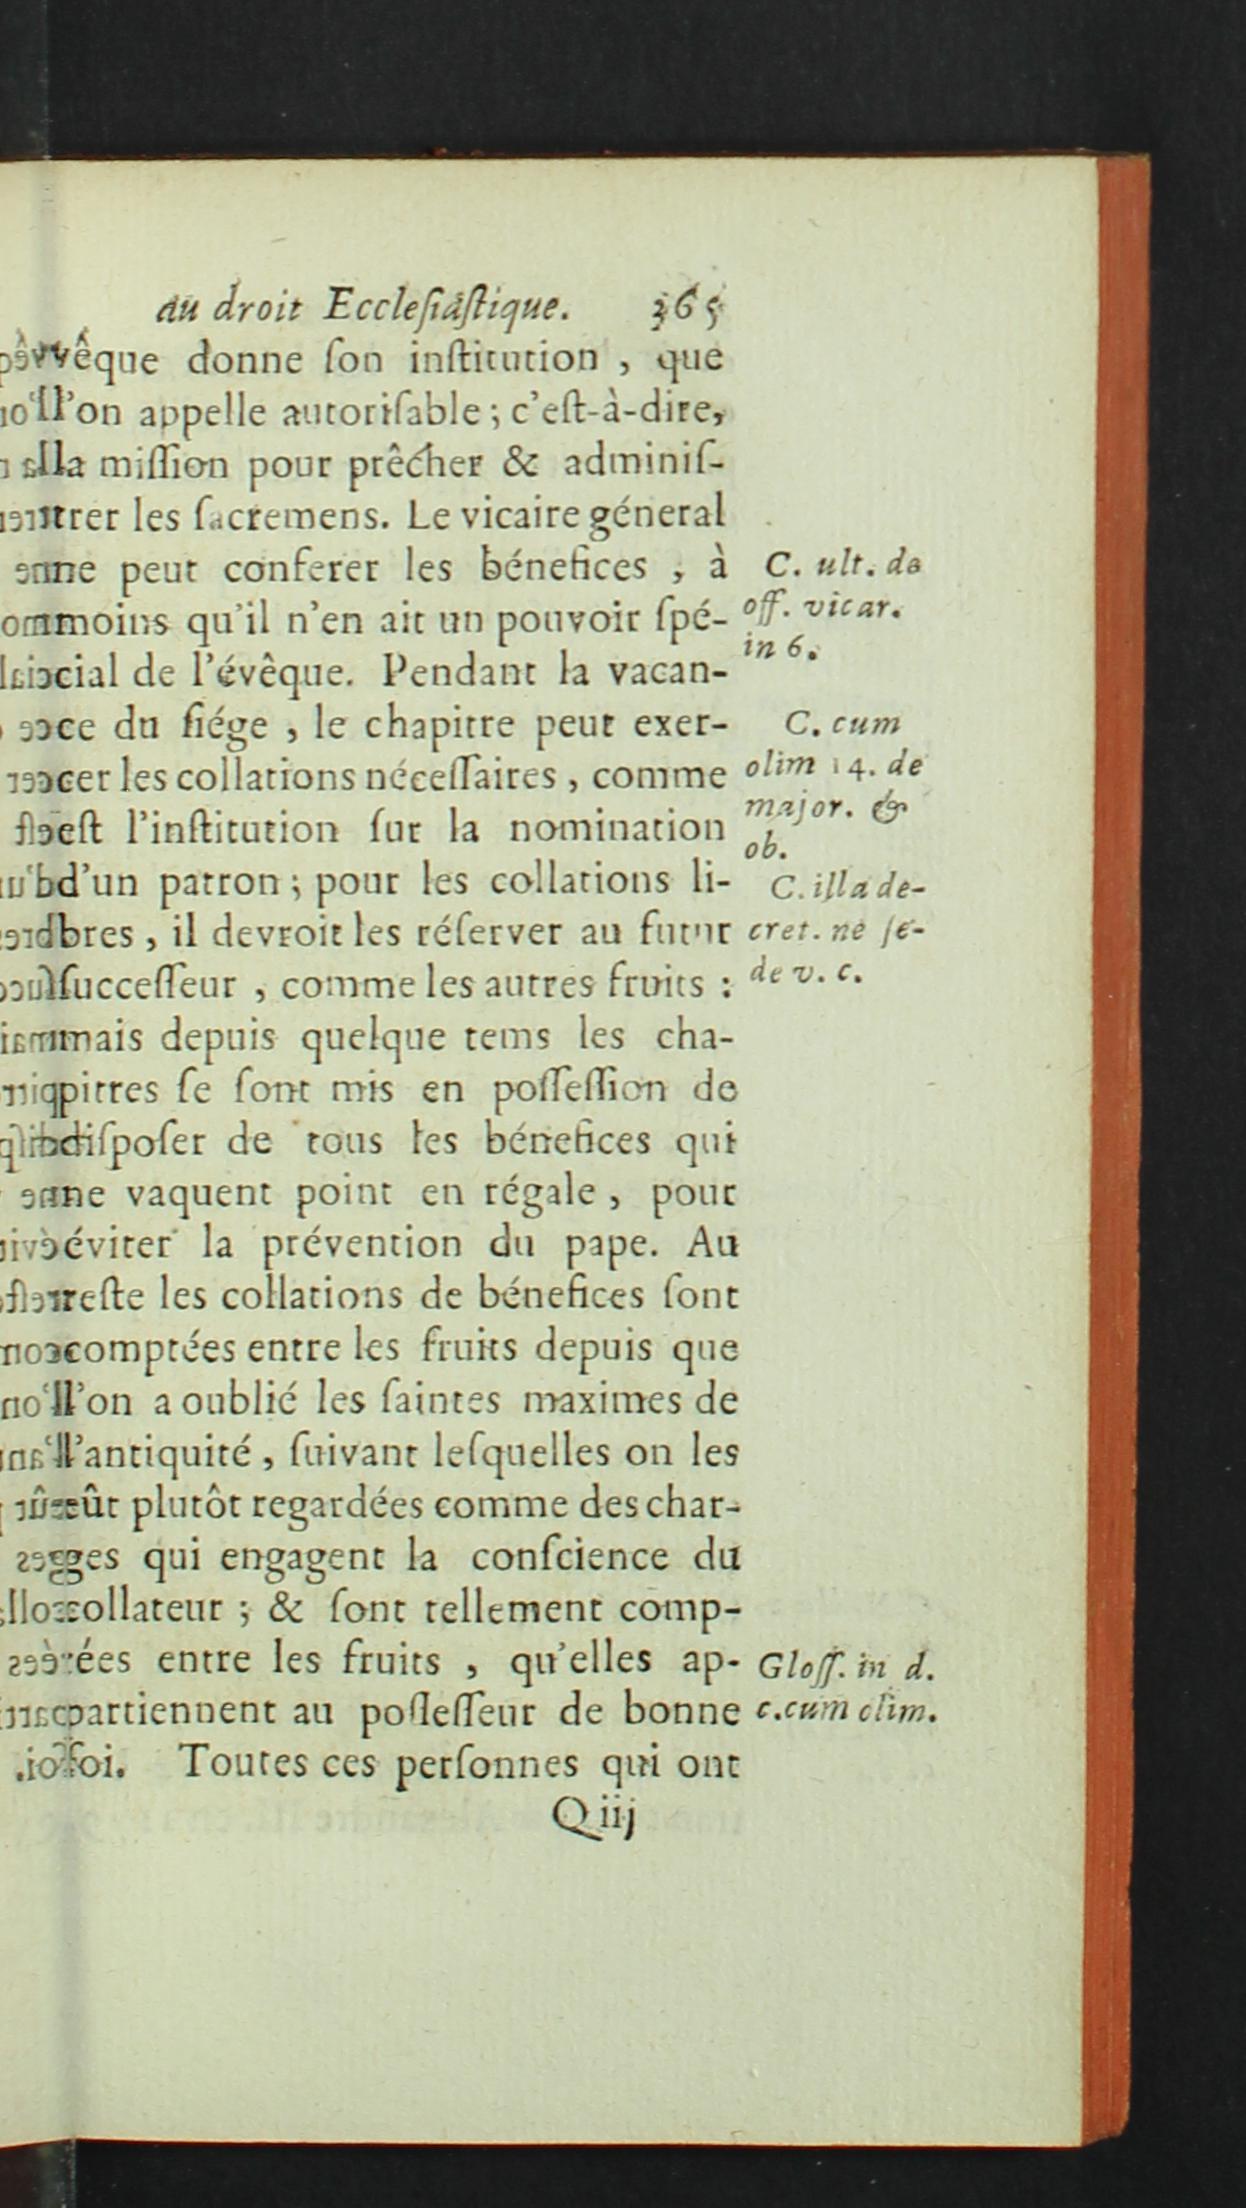 au droit Eccleſiaſtique. 365
vêque donne ſon inſtitution , que
l'on appelle autoriſable ; c'eſt-à-dire,
la miſſion pour prêcher & adminiſ-
trer les ſacremens. Le vicaire géneral
ne peut conferer les bénefices , à
moins qu'il n'en ait un pouvoir ſpé-
cial de l'évêque. Pendant la vacan-
ce du ſiége , le chapitre peut exer-
cer les collations néceſſaires , comme
eſt l'inſtitution ſur la nomination
d'un patron ; pour les collations li-
bres , il devroit les réſerver au futur
ſucceſſeur , comme les autres fruits :
mais depuis quelque tems les cha-
pitres ſe ſont mis en poſſeſſion de
diſpoſer de tous les bénefices qui
ne vaquent point en régale , pour
éviter la prévention du pape. Au
reſte les collations de bénefices ſont
comptées entre les fruits depuis que
l'on a oublié les ſaintes maximes de
l'antiquité , ſuivant leſquelles on les
eût plutôt regardées comme des char-
ges qui engagent la conſcience du
collateur ; & ſont tellement comp-
tées entre les fruits , qu'elles ap-
partiennent au poſſeſſeur de bonne
foi. Toutes ces perſonnes qui ont
Q iij
C. ult. de
off. vicar.
in 6.
C. cum
olim 14. de
major. &
ob.
C. illa de-
cret. ne ſe-
de v. c.
Gloſſ. in d.
c. cum olim.